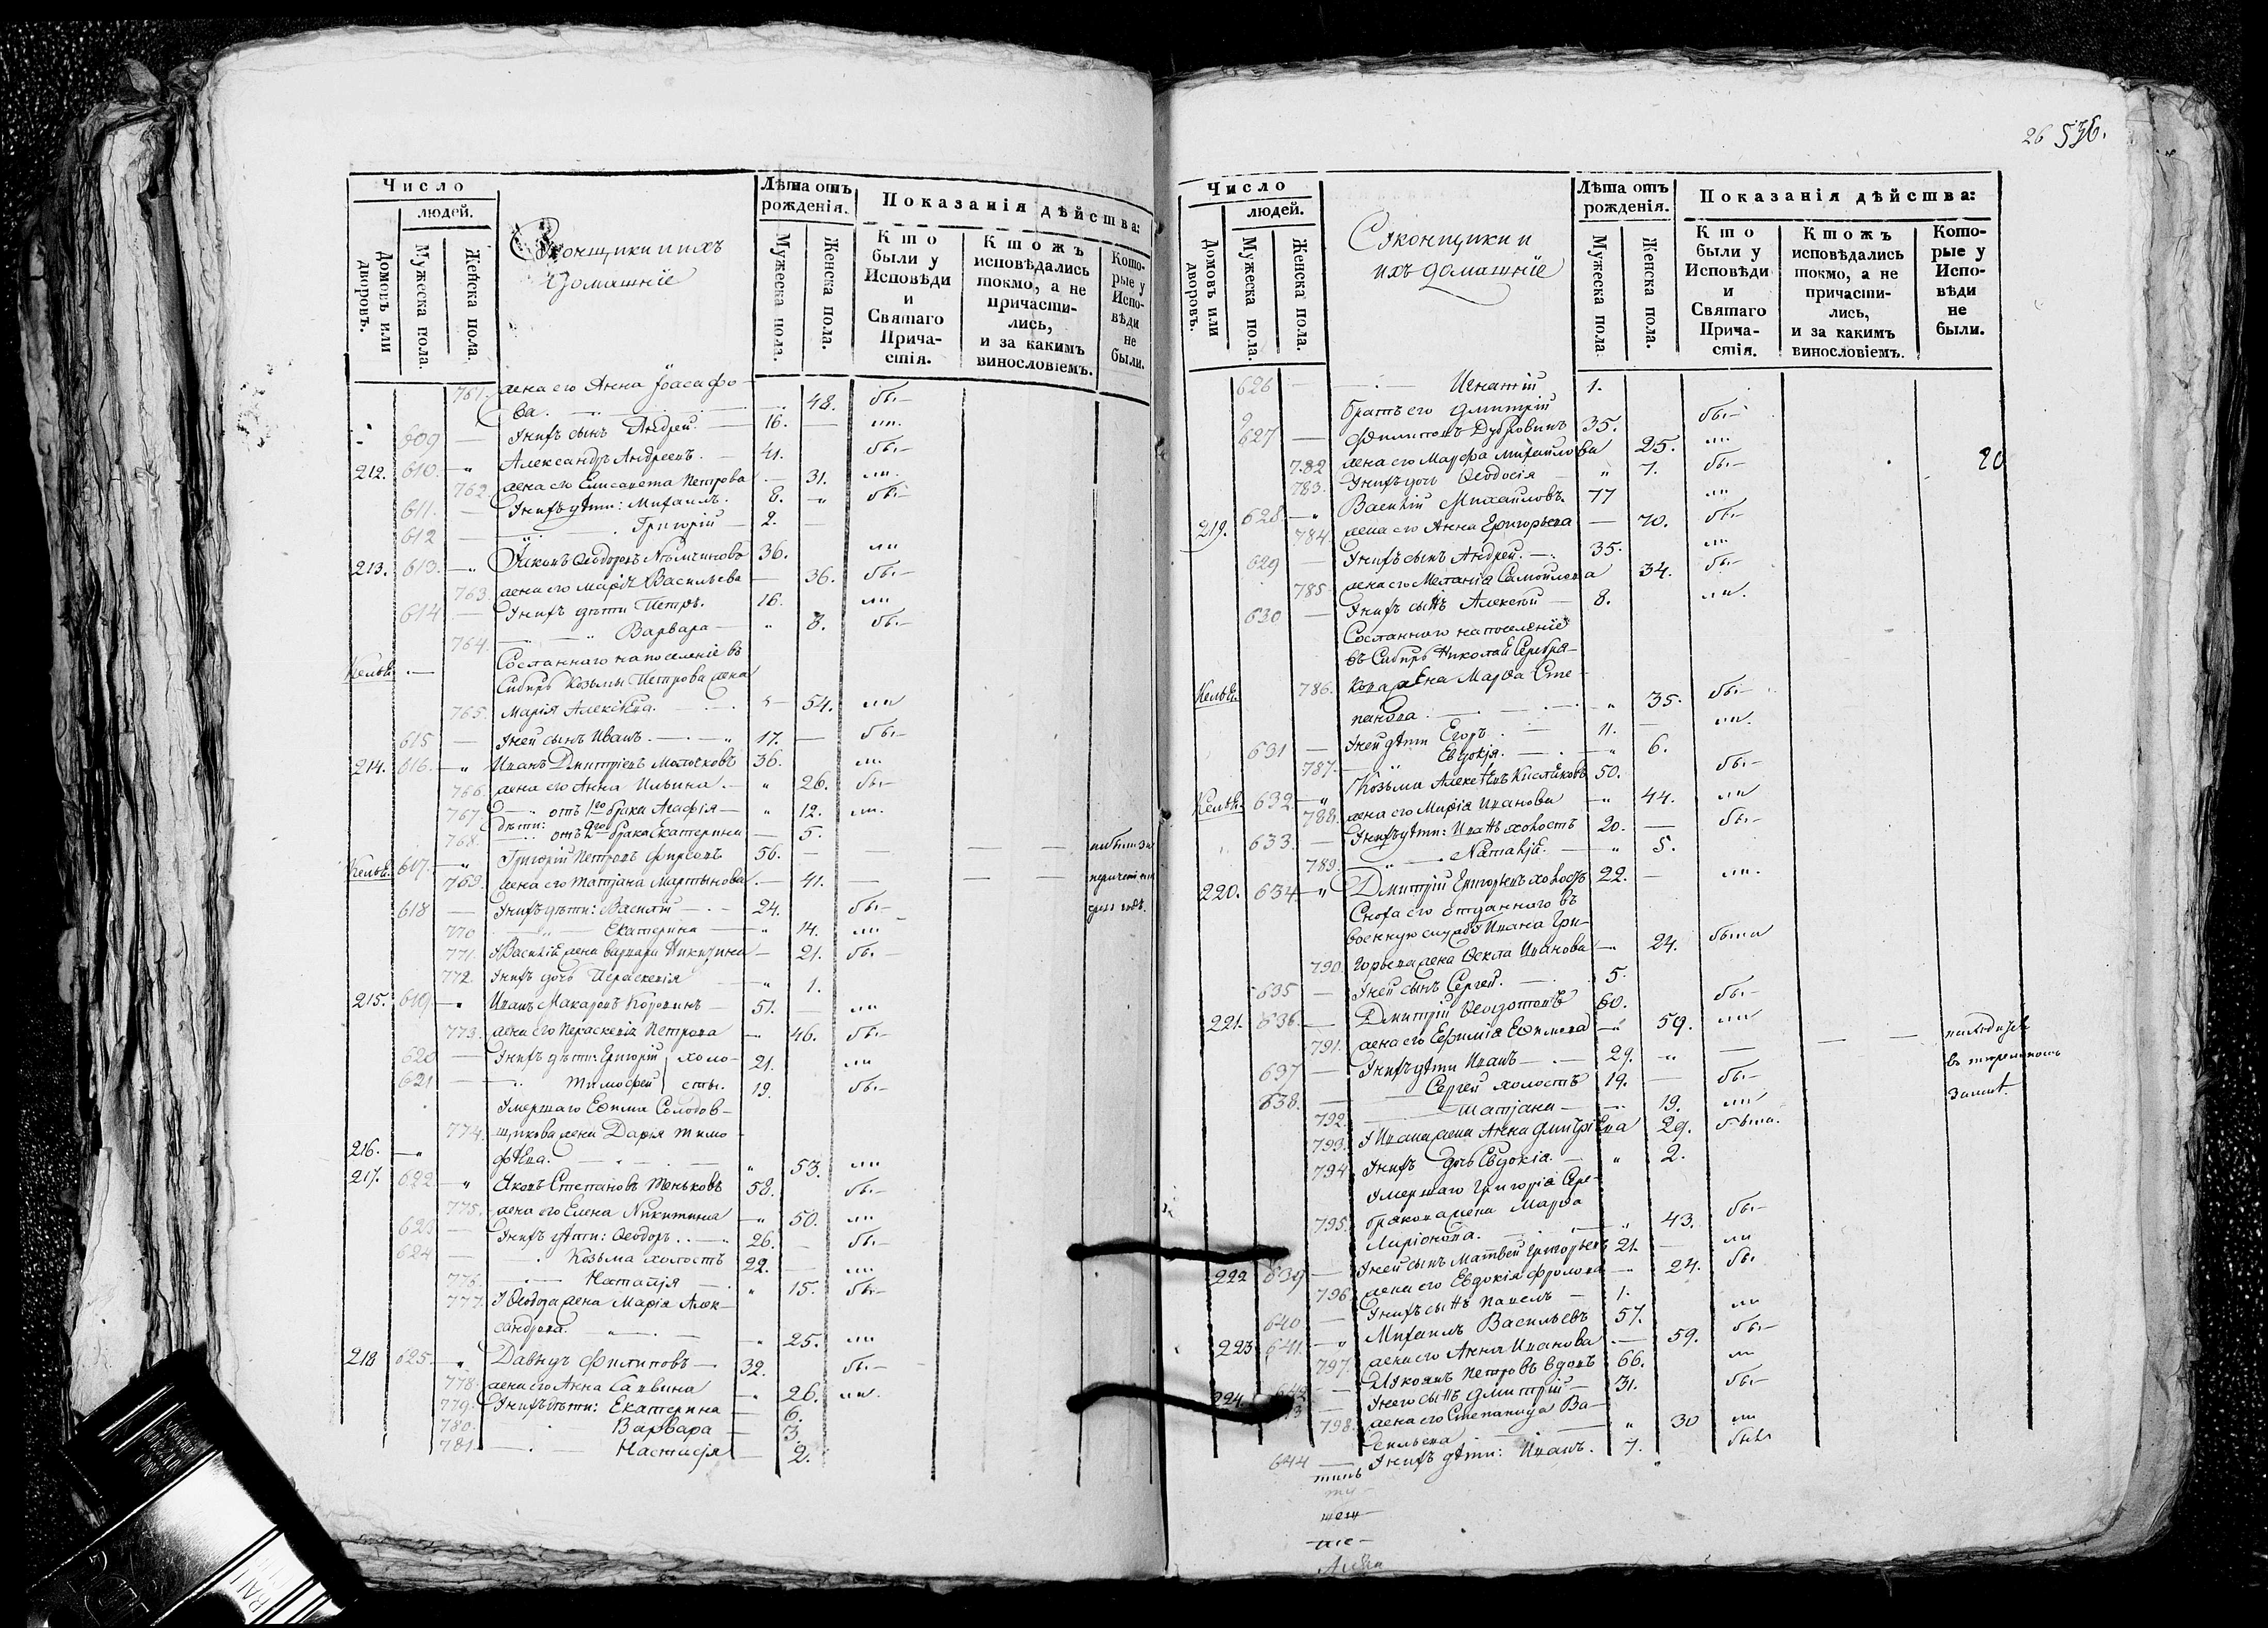 Число
людей.
Домовъ или дворовъ.
Мужеска пола.
Женска пола.
Экономщики и ихъ
домашніе
Лѣта отъ
рожденія.
Мужеска пола.
Женска пола.
Показанія дѣйства:
Кто были у Исповѣди и Святаго Причастія.
Ктожъ исповѣдались токмо, а не причастились, и за какимъ винословіемъ.
Которые у Исповѣди не были.
761. жена его Анна Іоасафо-
ва. 48. бы-
609 У нихъ сынъ Андрей. 16. ли.
212. 610. Александръ Андреевъ. 41. бы-
762. жена его Елисавета Петрова 31. ли.
611. У нихъ дѣти: Михаилъ. 8. бы-
612 Григорій 2.
213. 613. Никонъ Ѳеодоровъ 36. ли
763. жена его Марія Васильева 36. бы-
614 У нихъ дѣти Петръ. 16. ли
764. Варвара 8. бы-
Сосланнаго на поселеніе въ
Келья. Сибирь Козьмы Петрова жена
765. Марія Алексѣева. 54. ли
615 У ней сынъ Иванъ. 17. бы-
214. 616. Иванъ Дмитріевъ Молочковъ 36. ли
766. жена его Анна Ильина. 26. бы-
767. отъ 1го брака Агафія 12. ли.
дѣти:
768. отъ 2го брака Екатерина 5.
Келья. 617. Григорій Петровъ Фирсовъ 56.
769. жена его Татіана Мартынова. 41.
618 У нихъ дѣти: Василій 24. бы-
770 Екатерина 14. ли
771. У Василія жена Варвара Никитина 21. бы-
772. У нихъ дочь Параскевія 1.
215. 619. Иванъ Макаровъ 51. ли
773. жена его Параскевія Петрова 46. бы-
620 У нихъ дѣти: Григорій холо- 21. ли
621 Тимофей сты. 19. бы-
Умершаго Ефима Солодов-
774. щикова жена Дарія Тимо-
216. фѣева. 53. ли
217. 622. Яковъ Степановъ Теньковъ 58. бы-
775. жена его Елена Никитина 50. ли
623 У нихъ дѣти: Ѳеодоръ 26. бы-
624 Козьма холостъ 22. ли
776. Наталія 15. бы-
777. У Ѳеодора жена Марія Алек-
сандрова. 25. ли
218 625. Давыдъ Филиповъ 32. бы-
778. жена его Анна Саввина 26. ли.
779. У нихъ дѣти: Екатерина 6.
780. Варвара 3.
781. Настасія 2.
26 536.
Число
людей.
Домовъ или дворовъ.
Мужеска пола.
Женска пола.
Экономщики и
ихъ домашніе
Лѣта отъ
рожденія.
Мужеска пола
Женска пола.
Показанія дѣйства:
Кто были у Исповѣди и Святаго Причастія.
Ктожъ исповѣдались токмо, а не причастились, и за какимъ винословіемъ.
Которые у Исповѣди не были.
626 Игнатій 1.
братъ его Дмитрій
627 Филиповъ Дубровинъ 35. бы-
782 жена его Марфа Михайлова 25. ли
783. У нихъ дочь Ѳеодосія 7. бы-
20
219. 628 Василій Михайловъ. 77 ли
784. жена его Анна Григорьева 70. бы-
629 У нихъ сынъ Андрей. 35. ли
785. жена его Меланія Самойлова 34. бы-
630 У нихъ сынъ Алексѣй 8. ли.
Сосланнаго на поселеніе
въ Сибирь Николая Серебря-
Келья. 786. кова жена Марфа Сте-
панова. 35. бы-
631 У ней дѣти Егоръ. 11. ли.
787. Евдокія. 6.
Келья. 632. Козьма Алексѣевъ Кисляковъ 50. бы-
788. жена его Марія Иванова 44. ли
633. У нихъ дѣти: Иванъ холостъ 20. бы-
789. Наталія. 5.
220. 634 Дмитрій Григорьевъ холостъ 22. ли.
Сноха его отданнаго въ
военную службу Ивана Гри-
790. горьева жена Ѳекла Иванова 24. была
635 У ней сынъ Сергей. 5.
221. 636. Дмитрій Ѳеодотовъ 60. бы-
791. жена его Ефимія Ефимова 59. ли
637 У нихъ дѣти Иванъ 29. находится въ тюремномъ замкѣ.
638. Сергей холостъ 19. бы-
792. Татіана 19. ли
793. У Ивана жена Анна Дмитріева 29. была.
794. У нихъ дочь Евдокія. 2.
Умершаго Григорія Сере-
795. брякова жена Марфа
Ларіонова. 43. бы-
222 639 У ней сынъ Матвей Григорьевъ 21. ли
796. жена его Евдокія Фролова 24. бы
640 У нихъ сынъ Павелъ 1.
223 641. Михаилъ Васильевъ 57. ли
797. жена его Анна Иванова 59. бы-
224. 642 Яковъ Петровъ вдовъ 66. ли
643 У него сынъ Дмитрій 31. бы-
798. жена его Степанида Ва-
сильева 30 ли
644 У нихъ дѣти: Иванъ. 7. была